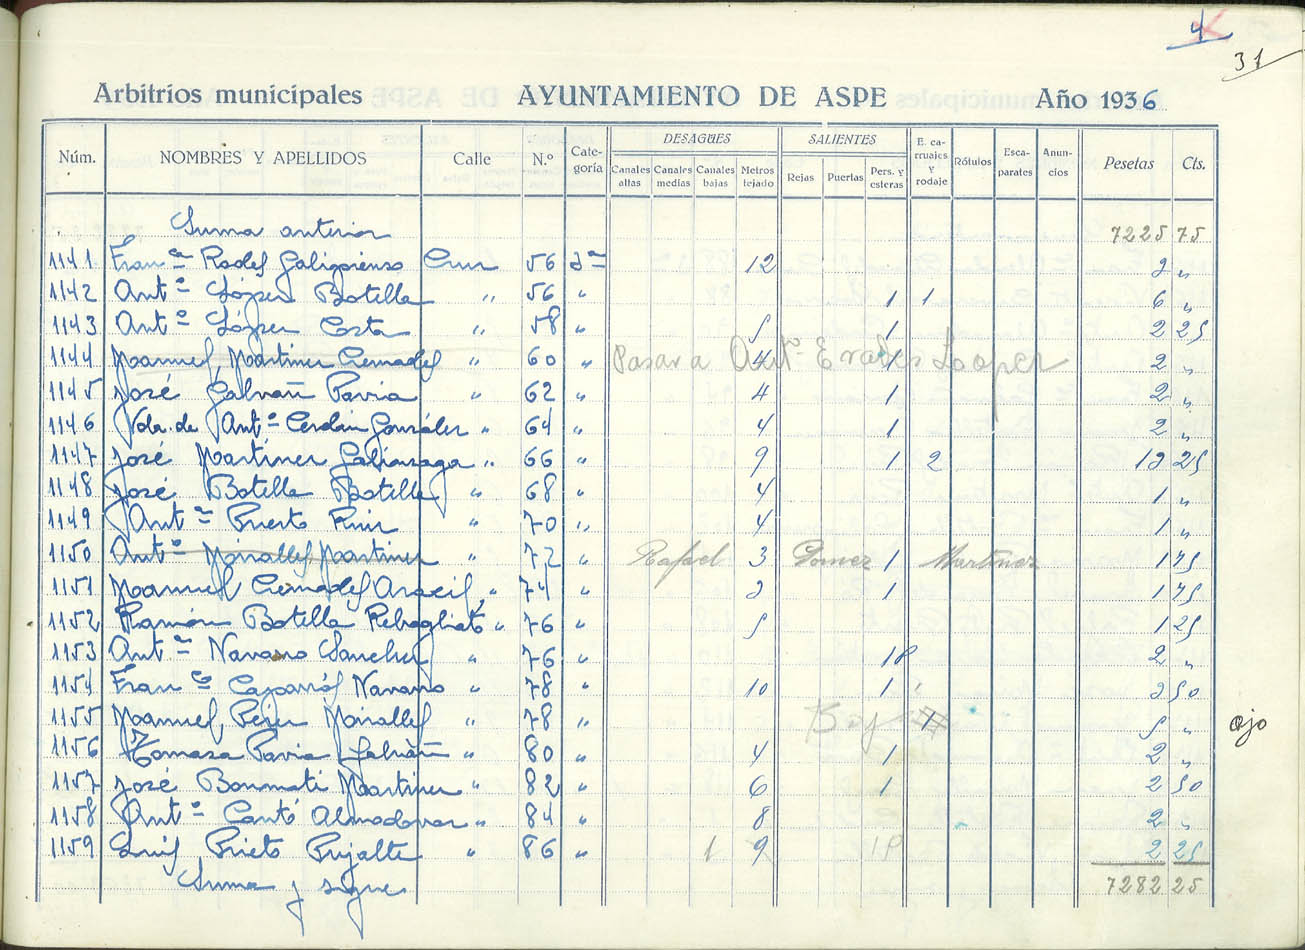 4
31
Arbitrios municipales AYUNTAMIENTO DE ASPE Año 1936
Núm. NOMBRES Y APELLIDOS Calle N.º Cate-goría DESAGÜES Canales altas Canales medias Canales bajas Metros tejado SALIENTES Rejas Puertas Pers. y esteras E. ca-rruajes y rodaje Rótulos Esca-parates Anun-cios Pesetas Cts.
Suma anterior 7225 75
1141 Fran.ca Cruz 56 2ª 12 2 "
1142 Ant.º López Botella " 56 " 1 1 6 "
1143 Ant.º López Costa " 58 " 5 1 2 25
1144 Manuel Martinez Cremades " 60 " 4 1 2 "
Pasar a Ant.º Erades Looper
1145 José Galvañ Pavia " 62 " 4 1 2 "
1146 Vda. de Ant.º Cerdán González " 64 " 4 1 2 "
1147 José Martinez Galinsoga " 66 " 9 1 2 12 25
1148 José Botella Botella " 68 " 4 1 "
1149 Ant.º Puerto Ruiz " 70 " 4 1 "
1150 Ant.º Mirallez Martinez " 72 " Rafael 3 Gomez 1 Martinez 1 75
1151 Manuel Cremades Aracil " 74 " 2 1 75
1152 Ramón Botella Rebogliato " 76 " 5 1 25
1153 Ant.º Navarro Sanchez " 76 " 1P 2 "
1154 Fran.co Caparrós Navarro " 78 " 10 1 2 50
1155 Manuel Perez Mirallez " 78 " Baj 5 " ojo
1156 Tomasa Pavia Galvañ " 80 " 4 1 2 "
1157 José Bonmati Martinez " 82 " 6 1 2 50
1158 Ant.º Cantó Almodovar " 84 " 8 2 "
1159 Luis Prieto Pujalte " 86 " 1 9 1P 2 25
Suma y sigue 7282 25